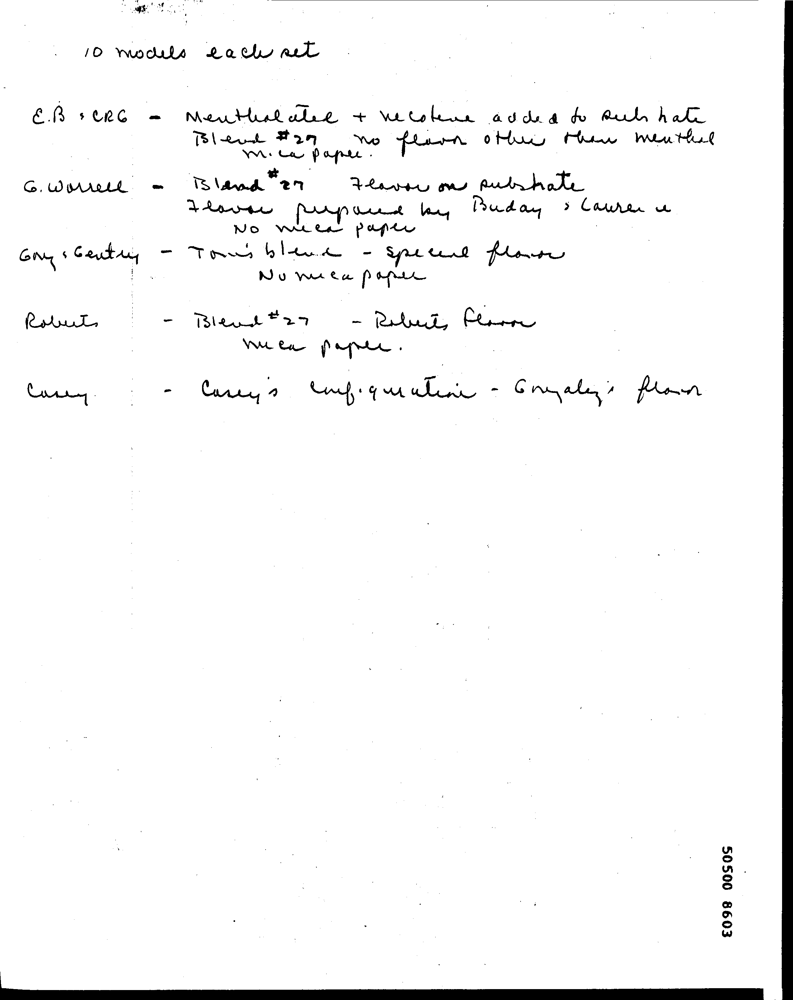 10 models each set
E.B & CRG - Mentholated + nicotine added to substrate
Blend #27 no flavor other than menthol
mica paper.
G. Worrell - Blend #27 Flavor on substrate
Flavor prepared by Buday & Lawrence
No mica paper
& Gentry - Tom's blend - special flavor
No mica paper
Roberts - Blend #27 - Roberts flavor
mica paper.
Casey - Casey's configuration - Gonzalez's flavor
50500 8603